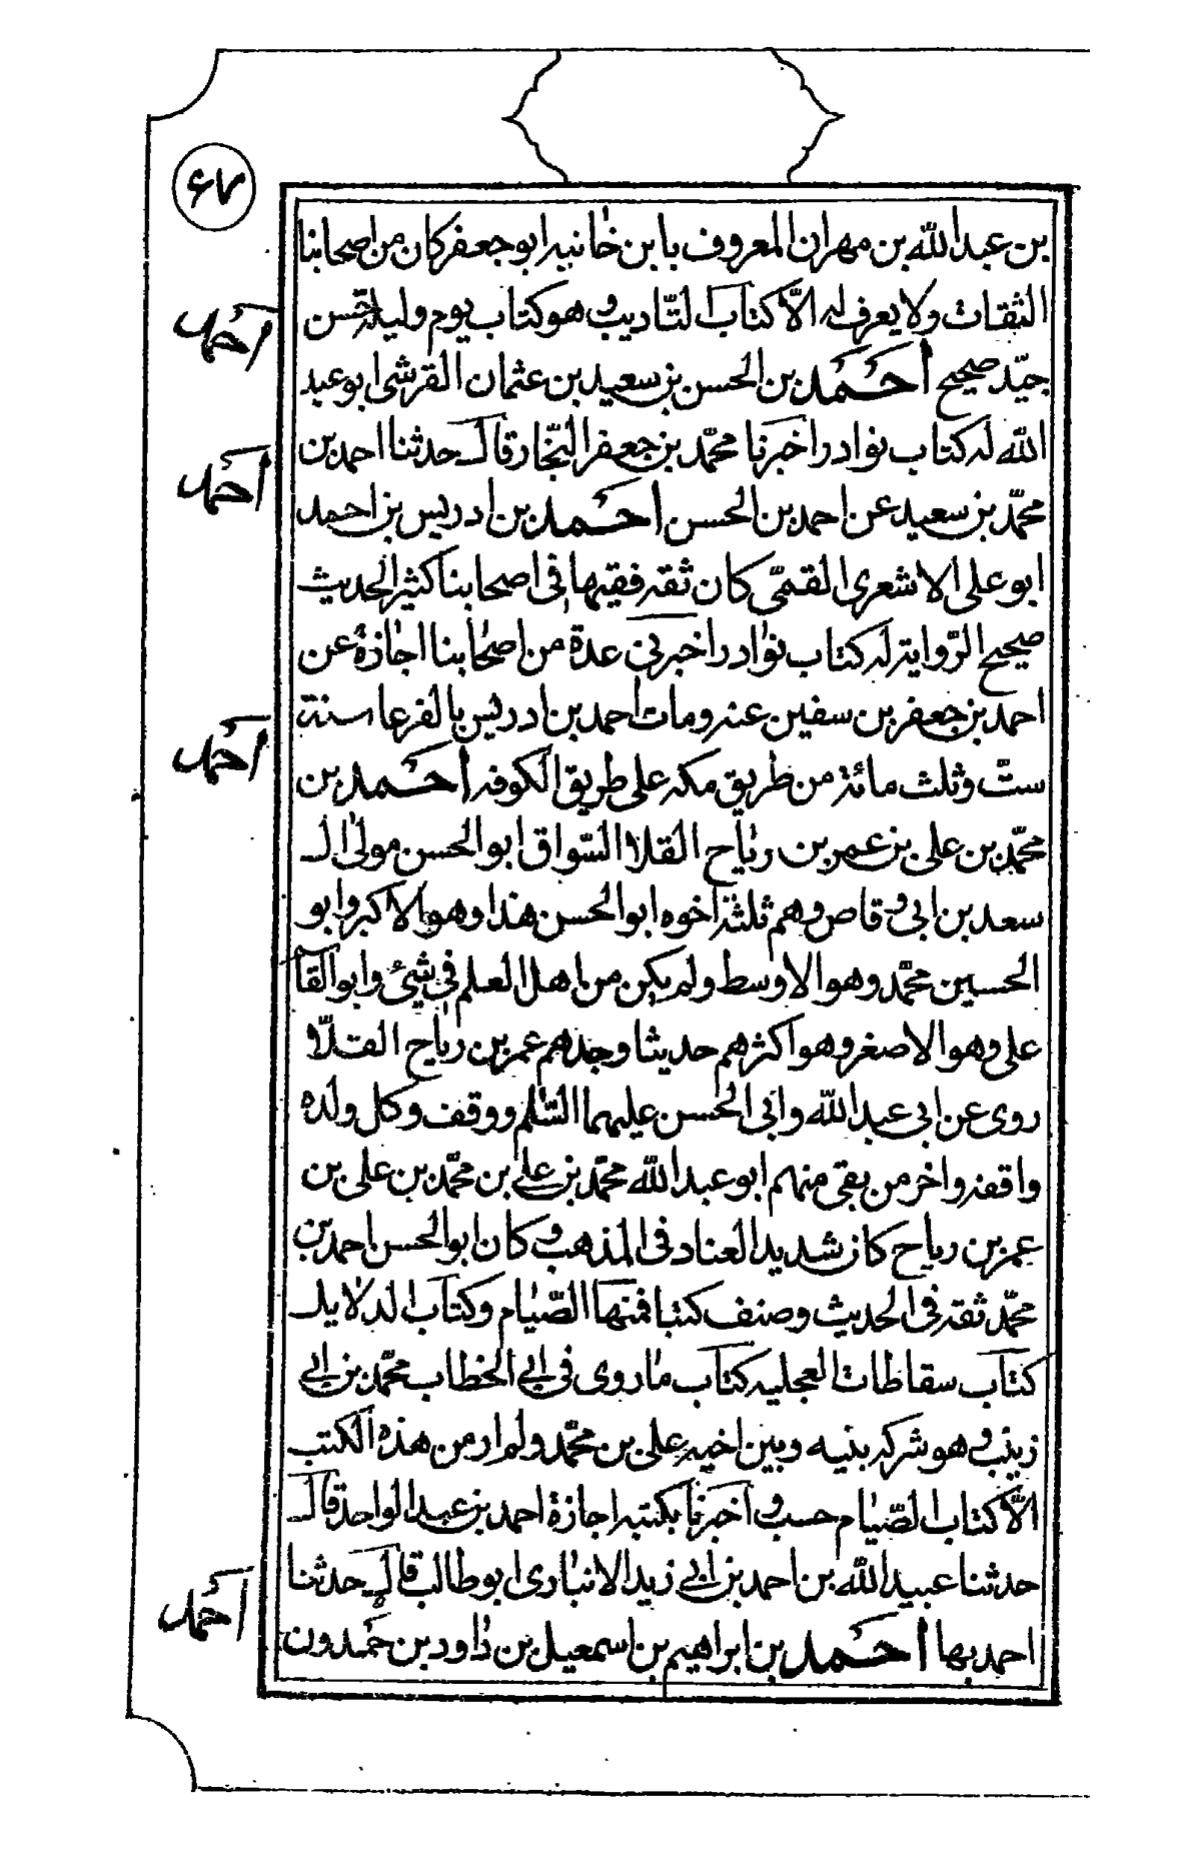 ۶۷
بن عبد الله بن مهران المعروف بابن خانبه ابو جعفر كان من اصحابنا
الثقات ولا يعرف له الّا كتاب التاديب وهو كتاب يوم وليلة حسن
جيّد صحيح أحمد بن الحسن بن سعيد بن عثمان القرشى ابو عبد
الله له كتاب نوادر اخبرنا محمّد بن جعفر النجّار قال حدثنا احمد بن
محمّد بن سعيد عن احمد بن الحسن أحمد بن ادريس بن احمد
ابو على الاشعرى القمّى كان ثقه فقيها فى اصحابنا كثير الحديث
صحيح الرّواية له كتاب نوادر اخبرنى عدة من اصحابنا اجازة عن
احمد بن جعفر بن سفين عنه ومات احمد بن ادريس بالفرعا سنة
ستّ وثلث مائة من طريق مكه على طريق الكوفه أحمد بن
محمّد بن على بن عمر بن رياح القلا السّواق ابو الحسن مولى ال
سعد بن ابى وقاص وهم ثلثة اخوه ابو الحسن هذا وهو الاكبر وابو
الحسين محمّد وهو الاوسط ولم يكن من اهل العلم فى شئ وابو القا
على وهو الاصغر وهو اكثرهم حديثا وجدهم عمر بن رياح القلّا
روى عن ابى عبد الله وابى الحسن عليهما السّلم ووقف وكل ولده
واقفه واخر من بقى منهم ابو عبد الله محمّد بن على بن محمّد بن على بن
عمر بن رياح كان شديد العناد فى المذهب وكان ابو الحسن احمد بن
محمّد ثقه فى الحديث وصنف كتبا فمنها الصّيام وكتاب الدلايل
كتاب سقاطات العجليه كتاب ما روى فى ابى الخطاب محمّد بن ابى
زينب وهو شركه بينه وبين اخيه على بن محمّد ولم ار من هذه الكتب
الّا كتاب الصّيام حسب واخبرنا بكتبه اجازة احمد بن عبد الواحد قال
حدثنا عبيد الله بن احمد بن ابى زيد الانبارى ابو طالب قال حدثنا
احمد بها أحمد بن ابراهيم بن اسمعيل بن داود بن حمدون
أحمد
أحمد
أحمد
أحمد